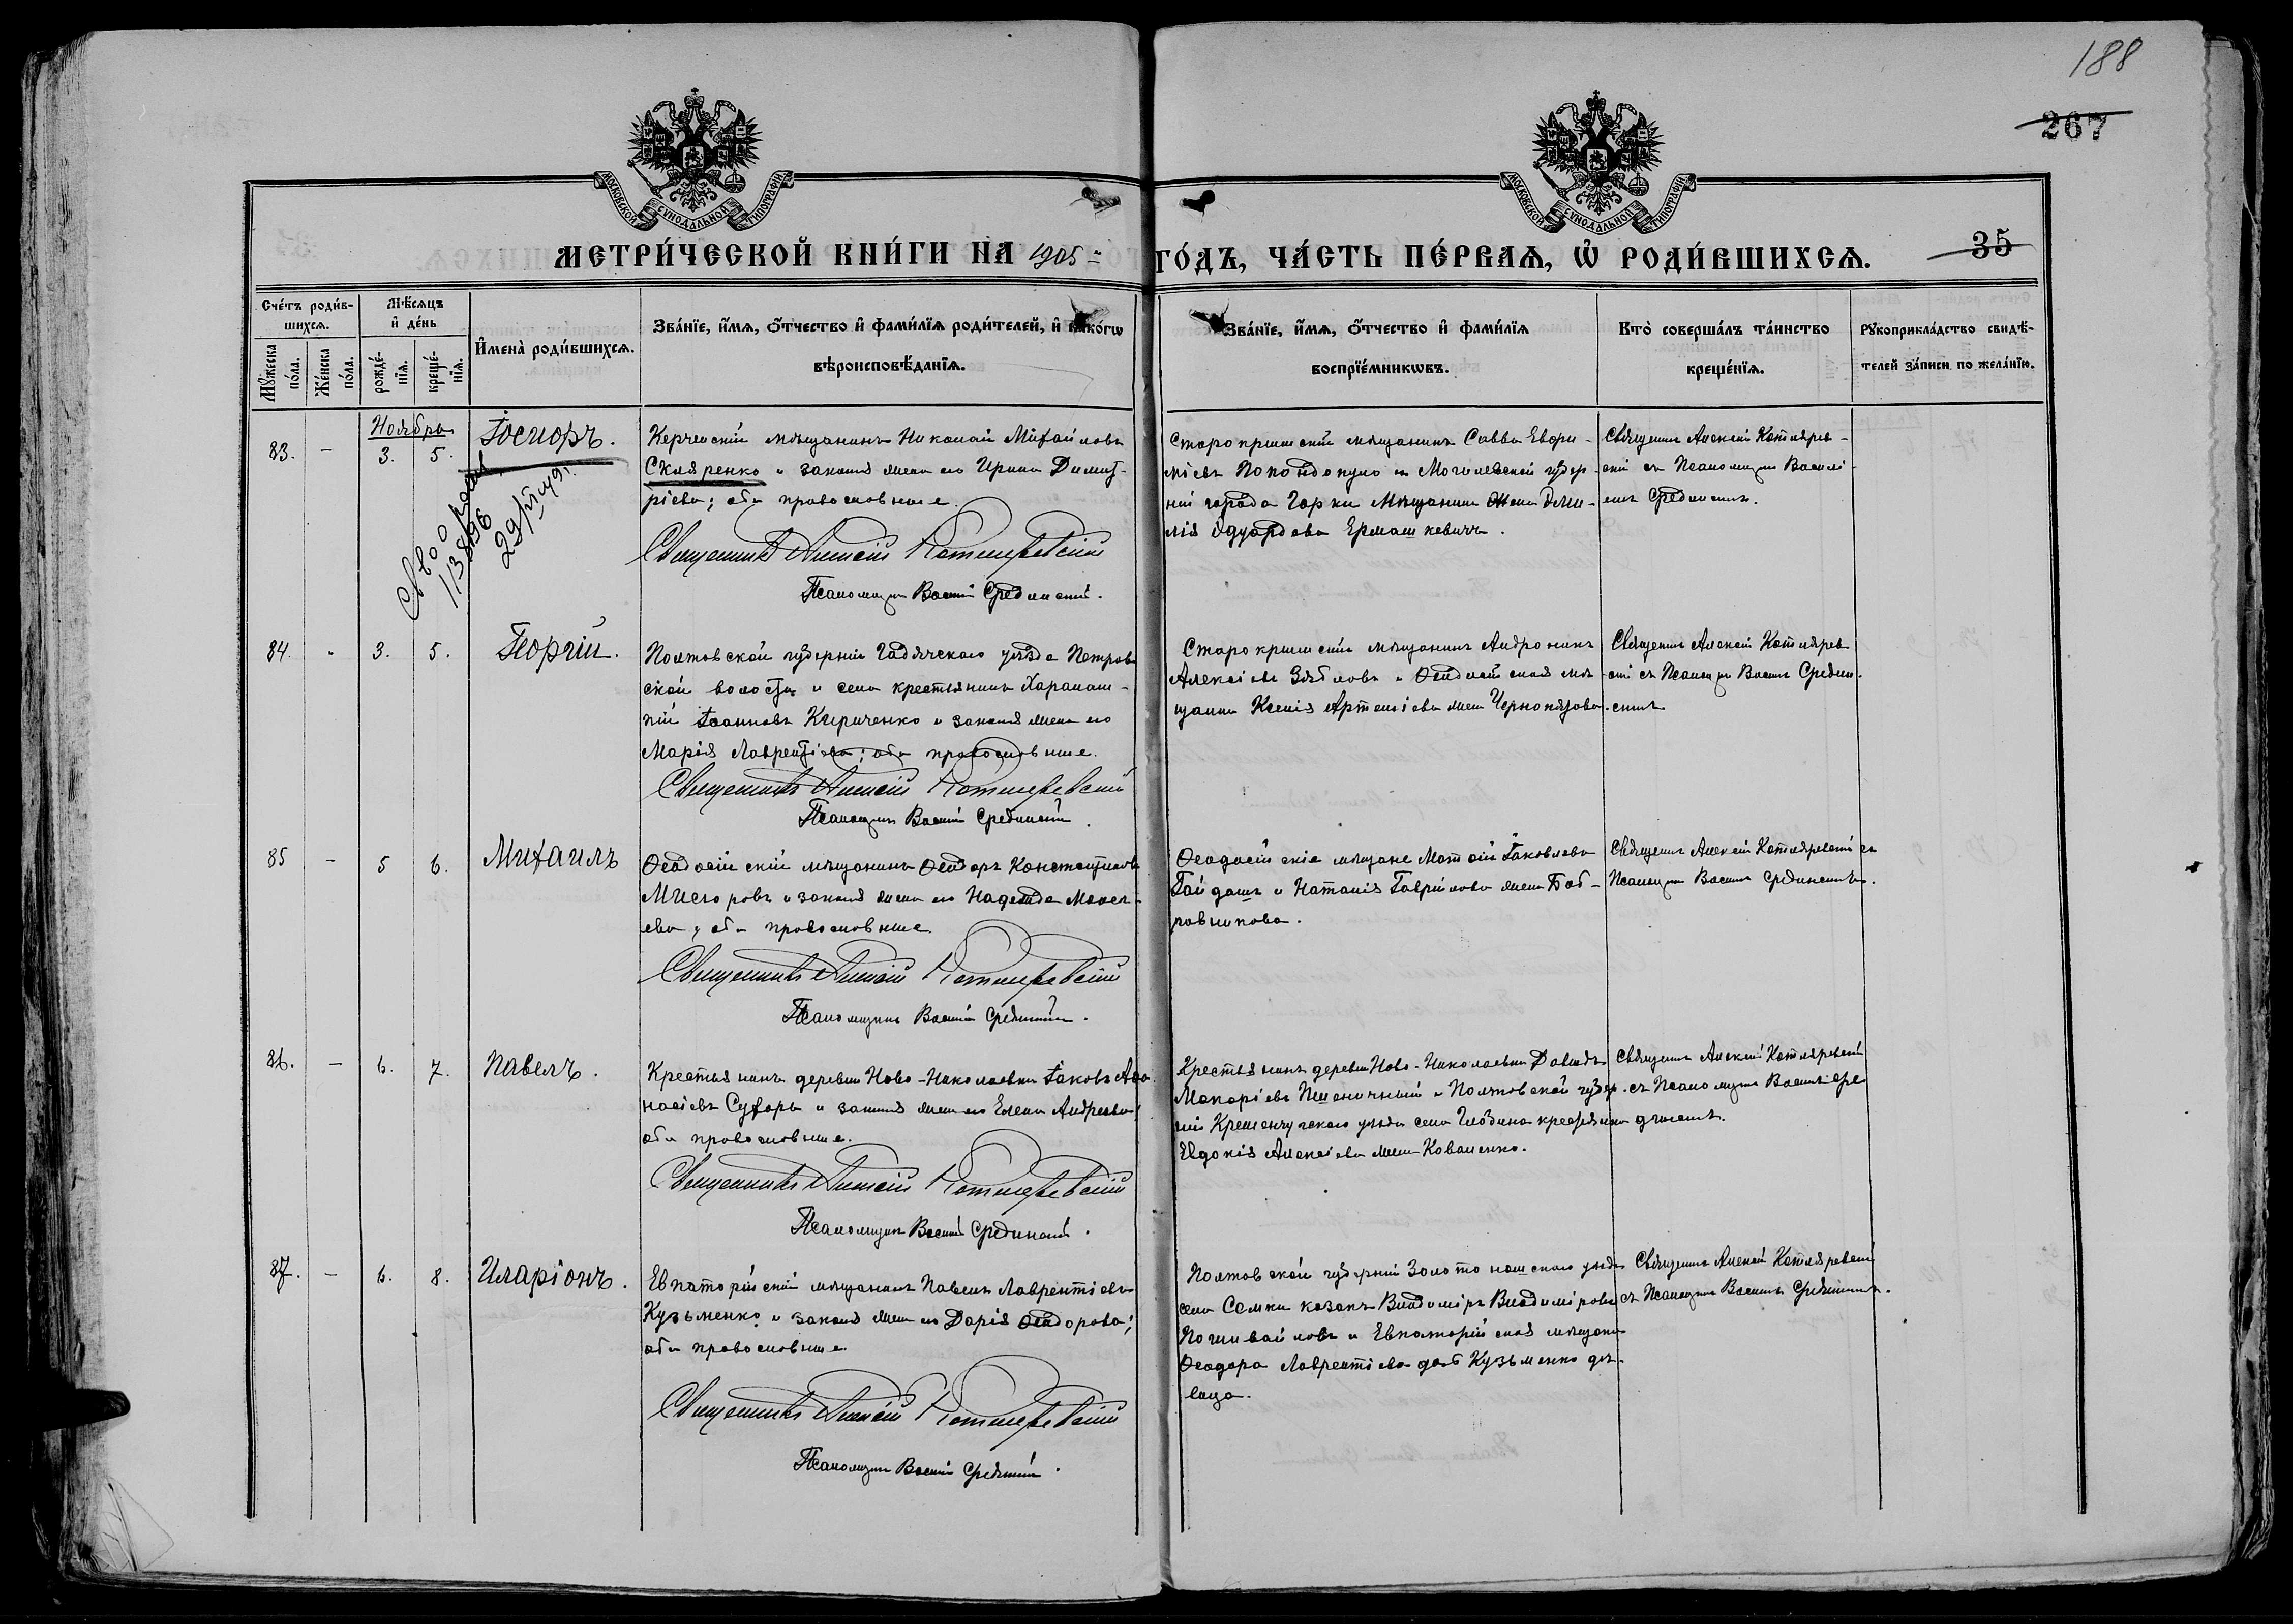 188
267
МОСКОВСКОЙ СѴНОДАЛЬНОЙ ТИПОГРАФІИ
МОСКОВСКОЙ СѴНОДАЛЬНОЙ ТИПОГРАФІИ
МЕТРИ́ЧЕСКОЙ КНИ́ГИ НА 1905 ГО́ДЪ, ЧА́СТЬ ПЕ́РВАѦ, Ѡ҆ РОДИ́ВШИХСѦ.
35
Сче́тъ роди́в-
шихсѧ.
Мꙋ́жеска по́ла.
Же́нска по́ла.
Мѣ́сѧцъ
и҆ де́нь
рожде́-
нїѧ.
креще́-
нїѧ.
И҆мена̀ роди́вшихсѧ.
Зва́нїе, и҆́мѧ, ѻ҆́тчество и҆ фами́лїѧ роди́телей, и҆ како́гѡ
вѣроисповѣ́данїѧ.
Зва́нїе, и҆́мѧ, ѻ҆́тчество и҆ фами́лїѧ
воспрїе́мникѡвъ.
Кто̀ соверша́лъ та́инство
креще́нїѧ.
Рꙋкоприкла́дство свидѣ́-
телей за́писи по жела́нїю.
Ноябрь
83. - 3. 5.
Керченскій мѣщанинъ Николай Михайловъ
Скляренко и законная жена его Ирина Димит-
ріева; оба православные.
Священникъ Алексій Котляревскій
Псаломщикъ Василій Срединскій.
Старокрымскій мѣщанинъ Савва
и Могилевской губер-
ніи города Горки мѣщанина жена
Эдуардова Ермашкевичъ.
Священникъ Алексій Котлярев-
скій съ Псаломщикомъ Василі-
емъ Срединскимъ.
84. - 3. 5. Георгій.
Полтовской губерніи Гадячскаго уѣзда Петров
ской волости и села крестьянинъ Харалам-
пій Іоанновъ Кириченко и законная жена его
Марія Лаврентіева; оба православные.
Священникъ Алексій Котляревскій
Псаломщикъ Василій Срединскій.
Старокрымскій мѣщанинъ Андроникъ
Алексіевъ и Ѳеодосійская мѣ-
щанка Ксенія Артеміева жена
Священникъ Алексій Котлярев
скій съ Псаломщ. Василіемъ Средин-
скимъ
85 - 5 6. Михаилъ
Ѳеодосійскій мѣщанинъ Ѳеодоръ Константиновъ
и законная жена его Надежда Моисе-
ева; оба православные.
Священникъ Алексій Котляревскій
Псаломщикъ Василій Срединскій.
Ѳеодосійскіе мѣщане Матѳій Іаковлевъ
Гайдашъ и Наталія Гавріилова жена Боб-
ровникова.
Священникъ Алексій Котляревскій съ
Псаломщикомъ Василіемъ Срединскимъ.
86. - 6. 7. Павелъ.
Крестьянинъ деревни Ново-Николаевки Іаковъ Аѳа-
насіевъ и законная жена его Елена Андреева;
оба православные.
Священникъ Алексій Котляревскій
Псаломщикъ Василій Срединскій.
Крестьянинъ деревни Ново-Николаевки Давидъ
Макаріевъ Пшеничный и Полтовской губер-
ніи Кременчугскаго уѣзда села Глобина крестьянина
Евдокія Алексіева жена Коваленко.
Священникъ Алексій Котляревскій
съ Псаломщикомъ Василіемъ Сре
динскимъ.
87. - 6. 8. Иларіонъ.
Евпаторійскій мѣщанинъ Павелъ Лаврентіевъ
Кузьменко и законная жена его Дарія Ѳеодорова;
оба православные.
Священникъ Алексій Котляревскій
Псаломщикъ Василій Срединскій.
Полтовской губерніи Золотоношскаго уѣзда
села Сомки козакъ Владиміръ Владиміровъ
и Евпаторійская мѣщанка
Ѳеодора Лаврентіева дочь Кузьменко дѣ-
вица.
Священникъ Алексій Котляревскій
съ Псаломщикомъ Василіемъ Срединскимъ.